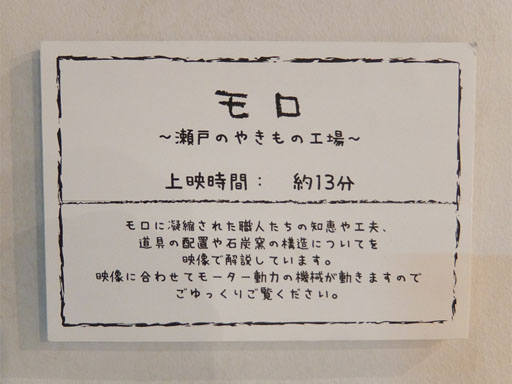 モロ
～瀬戸のやきもの工場～
上映時間： 約13分
モロに凝縮された職人たちの知恵や工夫、
道具の配置や石炭窯の構造についてを
映像で解説しています。
映像に合わせてモーター動力の機械が動きますので
ごゆっくりご覧ください。